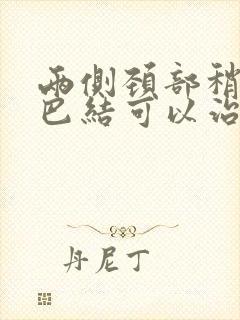 兩側頚部稍
巴結可以治
丹尼丁